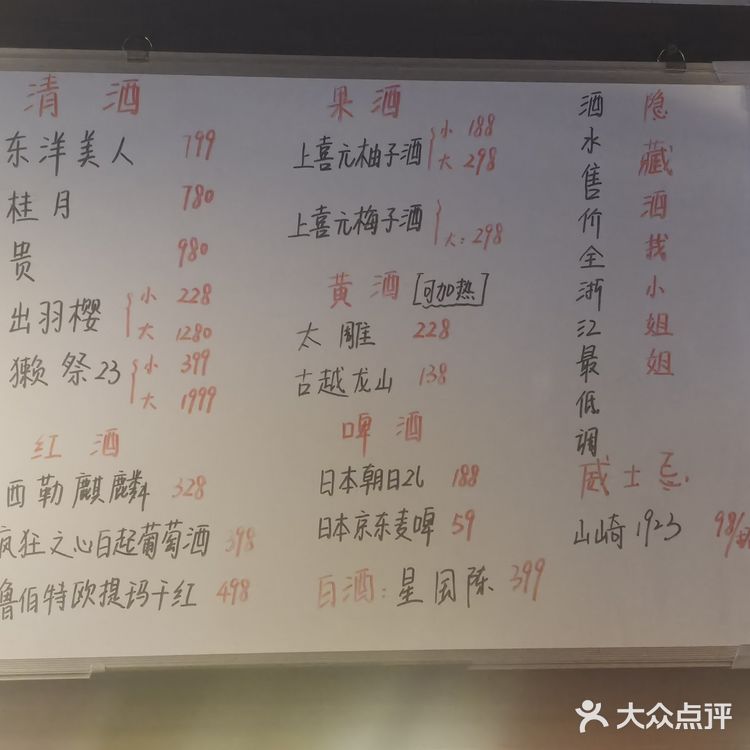 清酒
东洋美人 799
桂月 780
贵 980
出羽樱 小 228
大 1280
獭祭23 小 399
大 1999
红酒
西勒麒麟 328
疯狂之心白起葡萄酒 398
鲁伯特欧提玛干红 498
果酒
上喜元柚子酒 小 188
大 298
上喜元梅子酒
大：298
黄酒 [可加热]
太雕 228
古越龙山 138
啤酒
日本朝日2L 188
日本京东麦啤 59
白酒：星国陈 399
酒水售价全浙江最低调
隐藏酒找小姐姐
威士忌
山崎1923 98/
大众点评